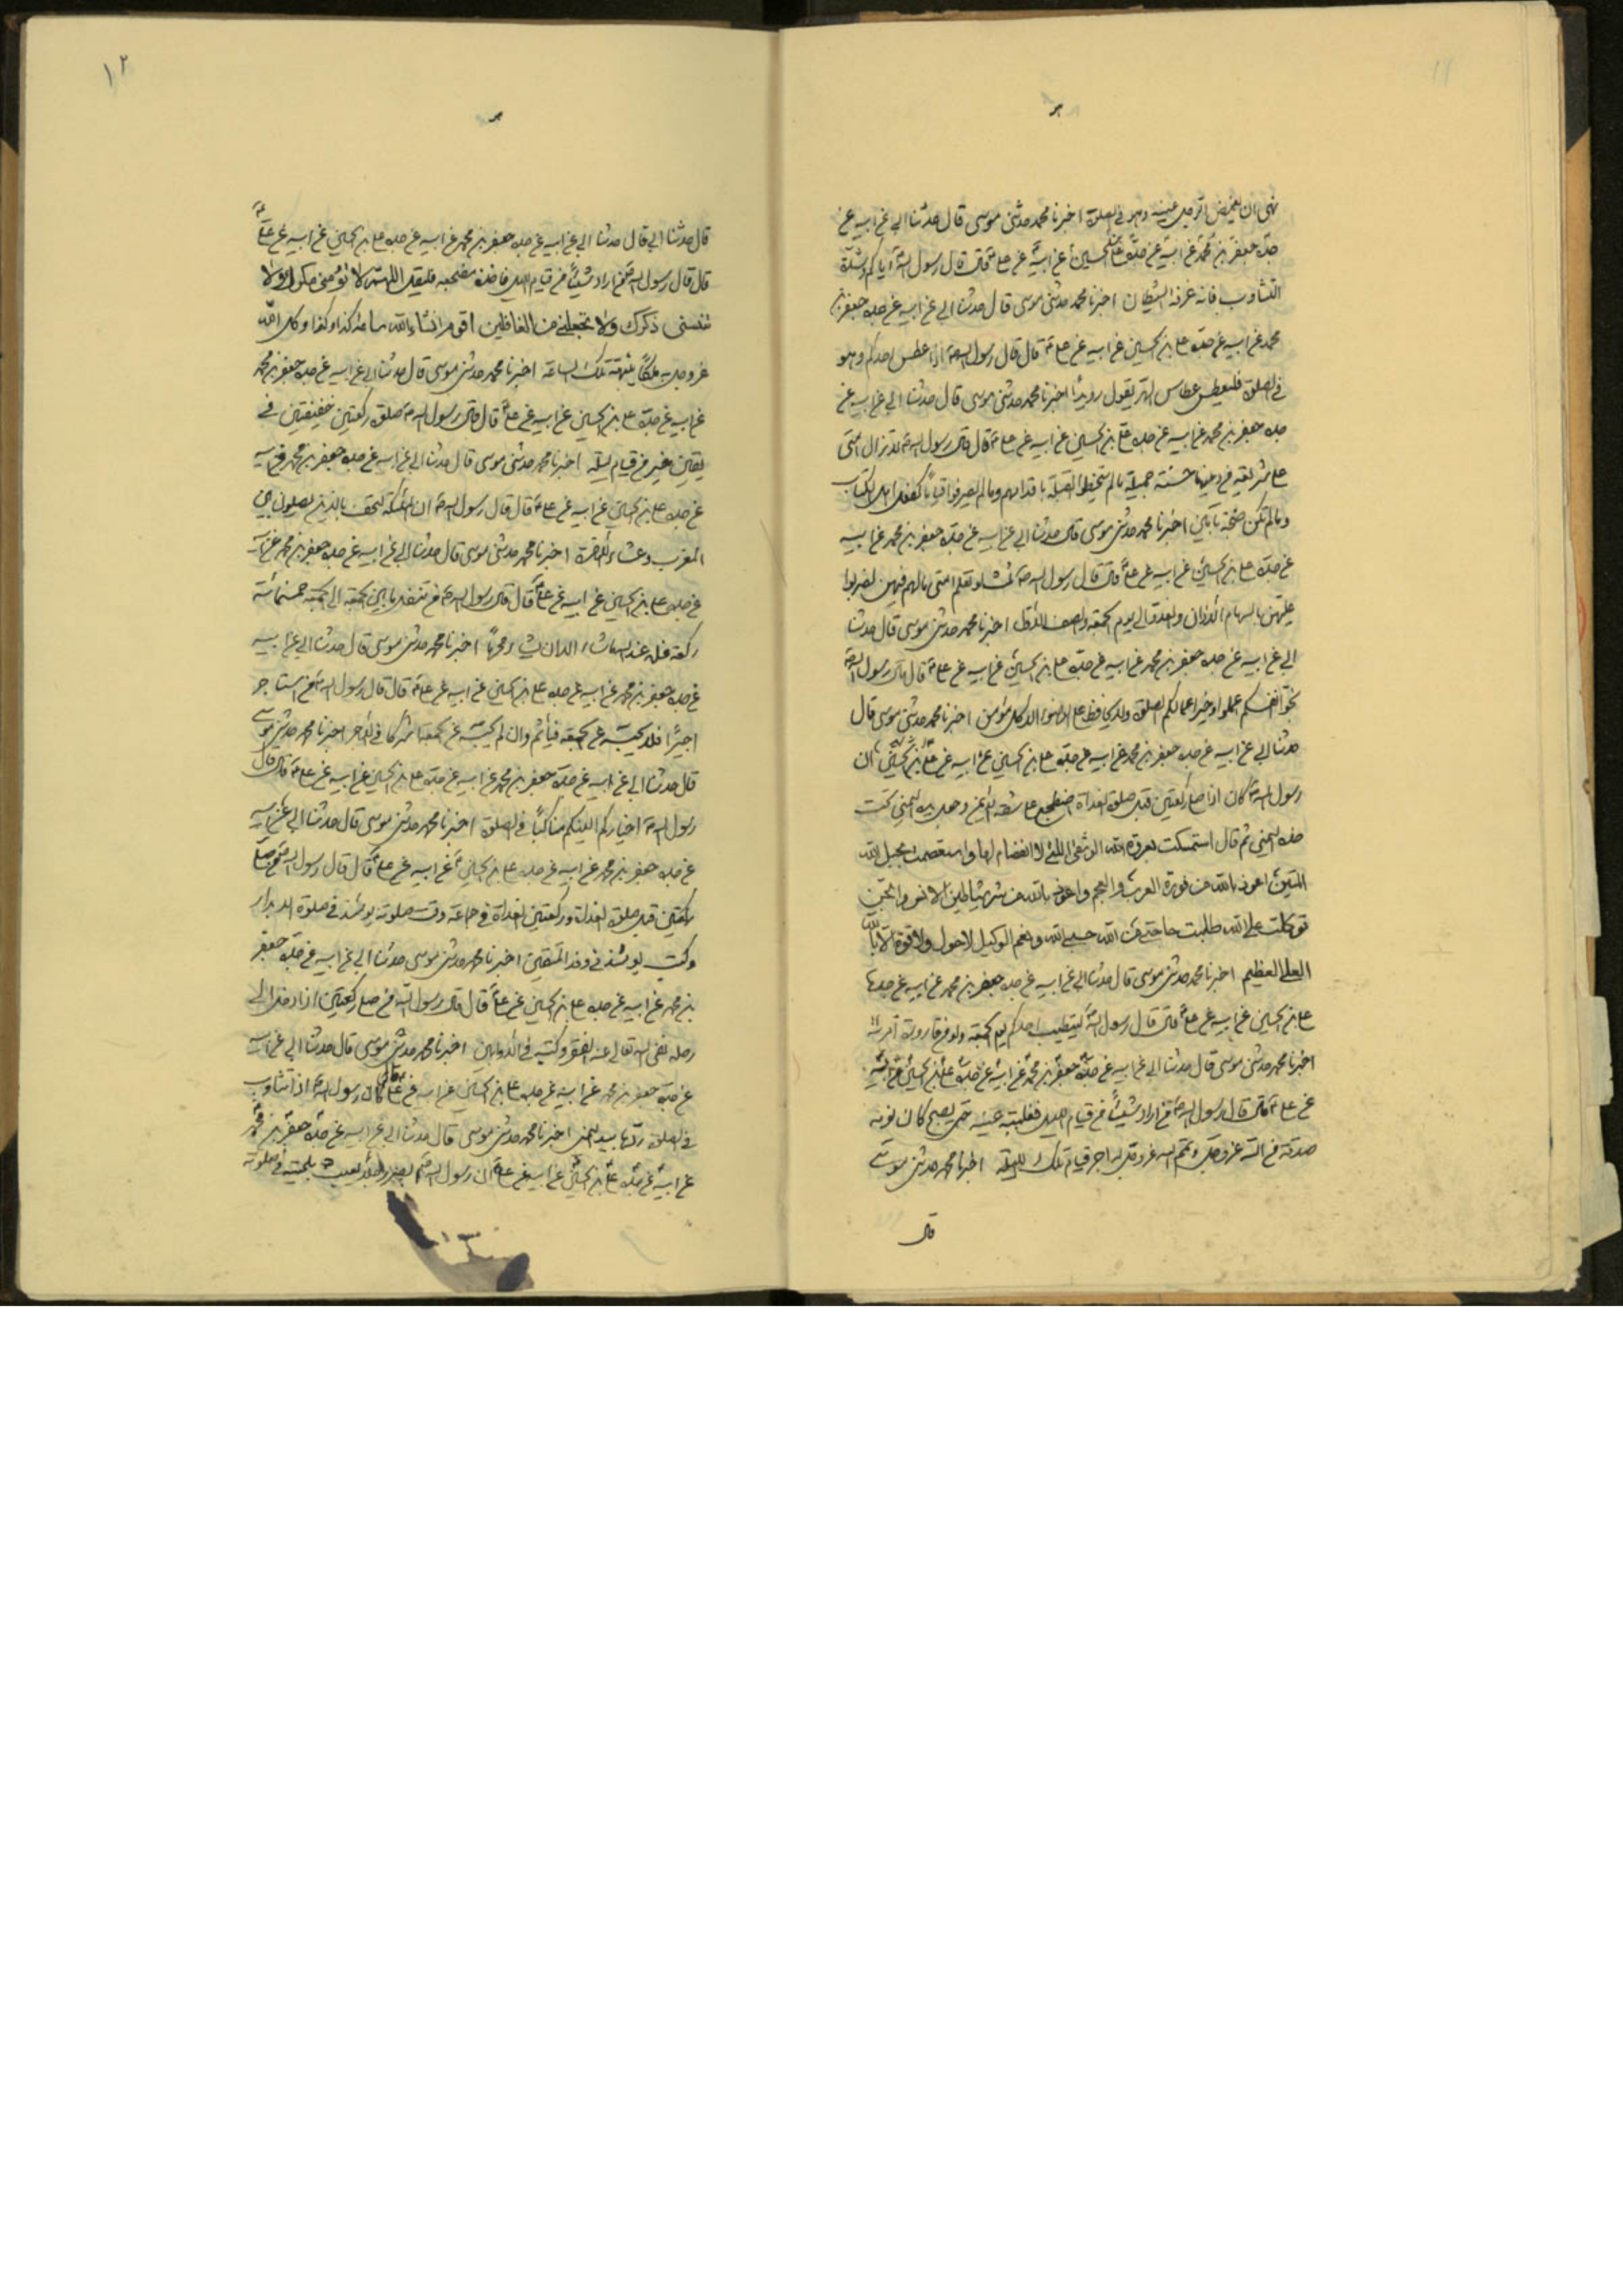 نهى ان يغمض الرجل عينيه وهو في الصلوة اخبرنا محمد حدثنى موسى قال حدثنا ابي عن ابيه عن
جده جعفر بن محمد عن ابيه عن جده علي بن الحسين عن ابيه عن علي قال قال رسول الله اياكم وشدة
التثاوب فانه عن الشيطان اخبرنا محمد حدثنى موسى قال حدثنا ابي عن ابيه عن جده جعفر بن
محمد عن ابيه عن جده علي بن الحسين عن ابيه عن علي قال قال رسول الله اذا عطس احدكم وهو
في الصلوة فليعطس عطاس الهر يقول رويدا اخبرنا محمد حدثنى موسى قال حدثنا ابي عن ابيه عن
جده جعفر بن محمد عن ابيه عن جده علي بن الحسين عن ابيه عن علي قال قال رسول الله لا تزال امتى
على شريعة من دينها حسنة جميلة ما لم يتخطوا القبلة باقدامهم وما لم ينصرفوا قياما كفعل اهل الكتاب
وما لم تكن ضجة بآمين اخبرنا محمد حدثنى موسى قال حدثنا ابي عن ابيه عن جده جعفر بن محمد عن ابيه
عن جده علي بن الحسين عن ابيه عن علي قال قال رسول الله ثلث لو تعلم امتى ما لهم فيهن لضربوا
عليهن بالسهام الاذان والغدو الى يوم الجمعة والصف الاول اخبرنا محمد حدثنى موسى قال حدثنا
ابي عن ابيه عن جده جعفر بن محمد عن ابيه عن جده علي بن الحسين عن ابيه عن علي قال قال رسول الله
انفسكم اعملوا وخير اعمالكم الصلوة ولا يحافظ على الوضوء الا كل مؤمن اخبرنا محمد حدثنى موسى قال
حدثنا ابي عن ابيه عن جده جعفر بن محمد عن ابيه عن جده علي بن الحسين عن ابيه عن علي ان
رسول الله كان اذا صلى ركعتين قبل صلوة الغداة اضطجع على شقه الايمن وجعل يده اليمنى تحت
خده اليمنى ثم قال استمسكت بعروة الله الوثقى التى لا انفصام لها واستعصمت بحبل الله
المتين اعوذ بالله من فورة العرب والعجم واعوذ بالله من شر شياطين الانس والجن
توكلت على الله طلبت حاجتى من الله حسبى الله ونعم الوكيل لا حول ولا قوة الا بالله
العلى العظيم اخبرنا محمد حدثنى موسى قال حدثنا ابي عن ابيه عن جده جعفر بن محمد عن ابيه عن جده
علي بن الحسين عن ابيه عن علي قال قال رسول الله ليتطيب احدكم يوم الجمعة ولو من قارورة امرأته
اخبرنا محمد حدثنى موسى قال حدثنا ابي عن ابيه عن جده جعفر بن محمد عن ابيه عن جده علي بن الحسين عن ابيه
عن علي قال قال رسول الله من اراد شيئا من قيام الليل فغلبته عينه حتى يصبح كان نومه
صدقة من الله عز وجل ويتمم الله عز وجل له اجر قيام تلك الليلة اخبرنا محمد حدثنى موسى
قال
١٢
قال حدثنا ابي قال حدثنا ابي عن ابيه عن جده جعفر بن محمد عن ابيه عن جده علي بن الحسين عن ابيه عن علي
قال قال رسول الله من اراد شيئا من قيام الليل فاخذ مضجعه فليقل اللهم لا تؤمنى مكرك ولا
تنسنى ذكرك ولا تجعلنى من الغافلين اقوم انشاء الله ساعة كذا وكذا وكل الله
عز وجل به ملكا ينبهه تلك الساعة اخبرنا محمد حدثنى موسى قال حدثنا ابي عن ابيه عن جده جعفر بن محمد
عن ابيه عن جده علي بن الحسين عن ابيه عن علي قال قال رسول الله صلوة ركعتين خفيفتين في
يقين خير من قيام ليلة اخبرنا محمد حدثنى موسى قال حدثنا ابي عن ابيه عن جده جعفر بن محمد عن ابيه
عن جده علي بن الحسين عن ابيه عن علي قال قال رسول الله ان الملئكة لتحف بالذين يصلون بين
المغرب وعشاء الاخرة اخبرنا محمد حدثنى موسى قال حدثنا ابي عن ابيه عن جده جعفر بن محمد عن ابيه
عن جده علي بن الحسين عن ابيه عن علي قال قال رسول الله من تنفل ما بين الجمعة الى الجمعة خمسمائة
ركعة فله عند الله ما شاء الا ان يشاء محرما اخبرنا محمد حدثنى موسى قال حدثنا ابي عن ابيه
عن جده جعفر بن محمد عن ابيه عن جده علي بن الحسين عن ابيه عن علي قال قال رسول الله من استاجر
اجيرا فلا يحبسه عن الجمعة فيأثم وان لم يحبسه عن الجمعة اشتركا في الاجر اخبرنا محمد حدثنى موسى
قال حدثنا ابي عن ابيه عن جده جعفر بن محمد عن ابيه عن جده علي بن الحسين عن ابيه عن علي قال قال
رسول الله اخياركم الينكم مناكبا في الصلوة اخبرنا محمد حدثنى موسى قال حدثنا ابي عن ابيه
عن جده جعفر بن محمد عن ابيه عن جده علي بن الحسين عن ابيه عن علي قال قال رسول الله من صلى
ركعتين قبل صلوة الغداة وركعتين الغداة في جماعة وقت صلوته يومئذ في صلوة الابرار
وكتب يومئذ في وفد المتقين اخبرنا محمد حدثنى موسى حدثنا ابي عن ابيه عن جده جعفر
بن محمد عن ابيه عن جده علي بن الحسين عن علي قال قال رسول الله من صلى ركعتين اذا دخل الى
رحله نفى الله تعالى عنه الفقر وكتبه في الاوابين اخبرنا محمد حدثنى موسى قال حدثنا ابي عن ابيه
عن جده جعفر بن محمد عن ابيه عن جده علي بن الحسين عن ابيه عن علي قال كان رسول الله اذا تثاوب
في الصلوة ردها بيده اليمنى اخبرنا محمد حدثنى موسى قال حدثنا ابي عن ابيه عن جده جعفر بن محمد
عن ابيه عن جده علي بن الحسين عن ابيه عن علي ان رسول الله ابصر رجلا يعبث بلحيته في صلوته